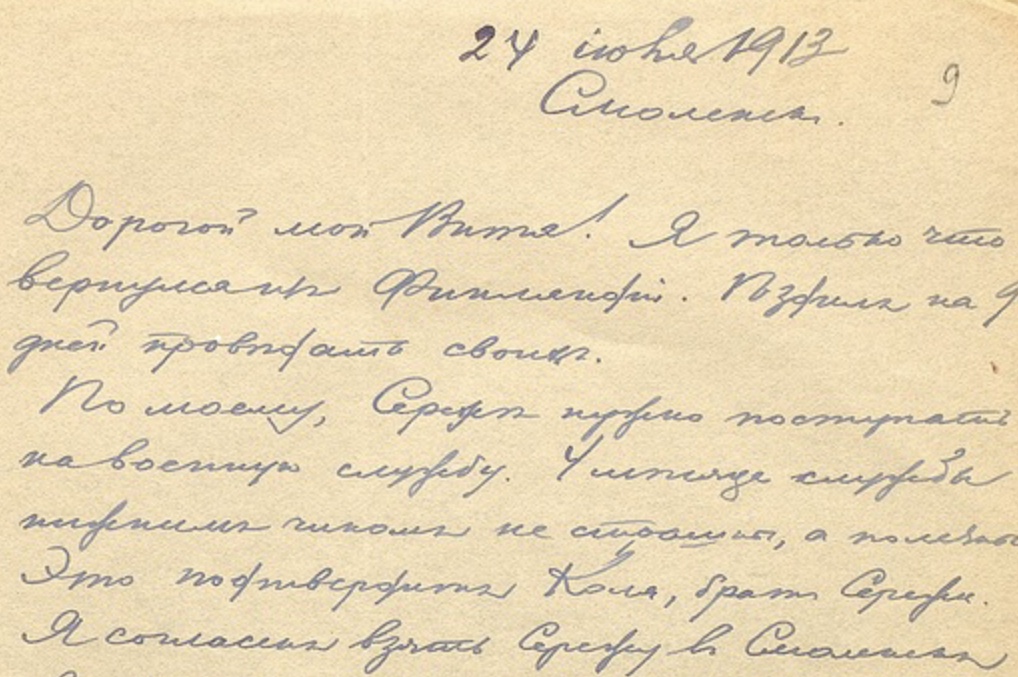 24 іюня 1913
9
Смоленскъ.
Дорогой мой Витя! Я только что
вернулся изъ Финляндіи. Ѣздилъ на 9
дней провѣдать своихъ.
По моему, Сережѣ нужно поступать
на военную службу. 4 мѣсяца службы
нижнимъ чиномъ не страшны, а полезны
Это подтвердитъ Коля, братъ Сережи.
Я согласенъ взять Сережу въ Смоленскъ